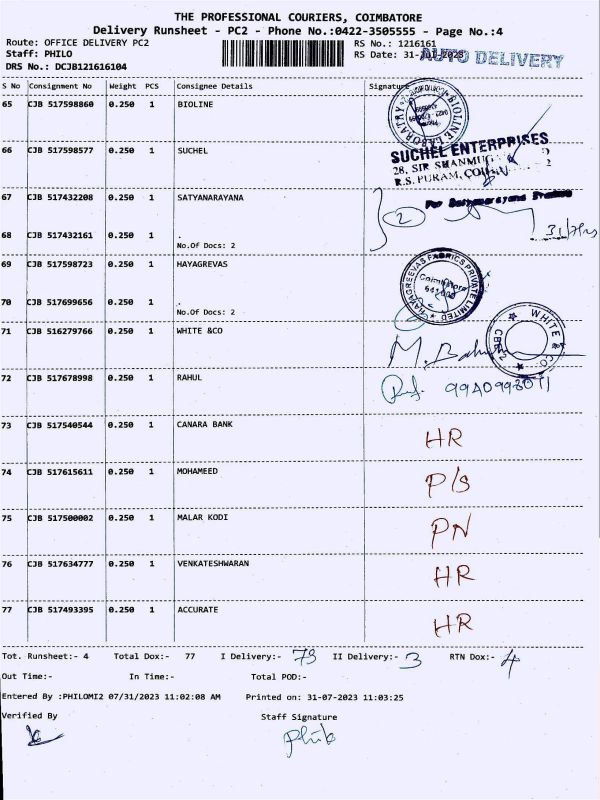 THE PROFESSIONAL COURIERS, COIMBATORE
Delivery Runsheet - PC2 - Phone No.:0422-3505555 - Page No.:4
Route: OFFICE DELIVERY PC2 RS No.: 1216161
Staff: PHILO RS Date: 31-Jul-2023
AUTO DELIVERY
DRS No.: DCJB121616104
S No Consignment No Weight PCS Consignee Details Signature
65 CJB 517598860 0.250 1 BIOLINE
BIOLINE LABORATRY
66 CJB 517598577 0.250 1 SUCHEL
SUCHEL ENTERPRISES
28, SIR SHANMUG
R.S. PURAM,
67 CJB 517432208 0.250 1 SATYANARAYANA
2
68 CJB 517432161 0.250 1 .
No.Of Docs: 2
69 CJB 517598723 0.250 1 HAYAGREVAS
HAYAGREEVAS FABRICS PRIVATE LIMITED
Coimbatore
70 CJB 517699656 0.250 1 .
No.Of Docs: 2
71 CJB 516279766 0.250 1 WHITE &CO
WHITE & CO
CBE-2
72 CJB 517678998 0.250 1 RAHUL
73 CJB 517540544 0.250 1 CANARA BANK HR
74 CJB 517615611 0.250 1 MOHAMEED P/S
75 CJB 517500002 0.250 1 MALAR KODI PN
76 CJB 517634777 0.250 1 VENKATESHWARAN HR
77 CJB 517493395 0.250 1 ACCURATE HR
Tot. Runsheet:- 4 Total Dox:- 77 I Delivery:- 73 II Delivery:- 3 RTN Dox:- 4
Out Time:- In Time:- Total POD:-
Entered By :PHILOMI2 07/31/2023 11:02:08 AM Printed on: 31-07-2023 11:03:25
Verified By Staff Signature